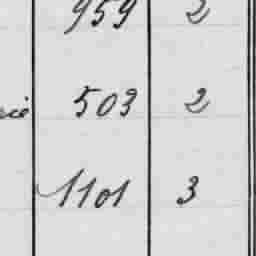 959 2
503 2
1101 3